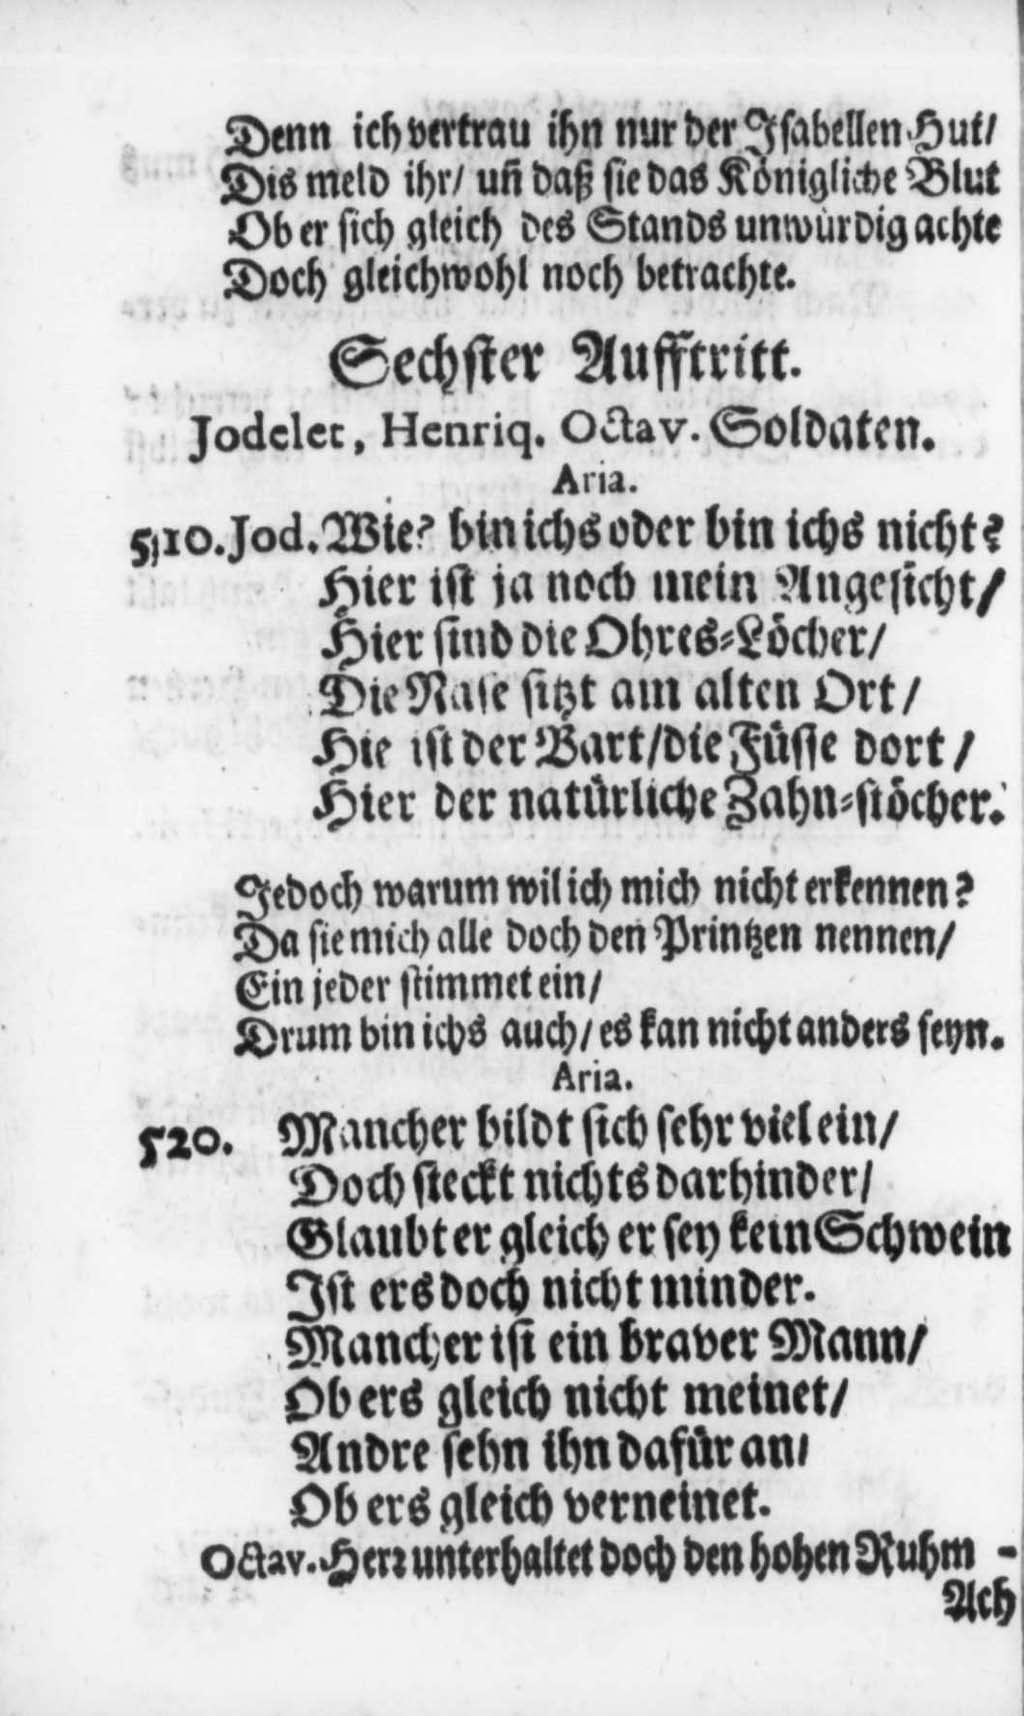 Denn ich vertrau ihn nur der Isabellen Hut/
Dis meld ihr/ uñ daß sie das Königliche Blut
Ob er sich gleich des Stands unwürdig achte
Doch gleichwohl noch betrachte.
Sechster Aufftritt.
Jodelet, Henriq. Octav. Soldaten.
Aria.
510. Jod. Wie? bin ichs oder bin ichs nicht?
Hier ist ja noch mein Angesicht/
Hier sind die Ohres-Löcher/
Die Nase sitzt am alten Ort/
Hie ist der Bart/die Füsse dort/
Hier der natürliche Zahn-stöcher.
Jedoch warum wil ich mich nicht erkennen?
Da sie mich alle doch den Printzen nennen/
Ein jeder stimmet ein/
Drum bin ichs auch/ es kan nicht anders seyn.
Aria.
520. Mancher bildt sich sehr viel ein/
Doch steckt nichts darhinder/
Glaubt er gleich er sey kein Schwein
Ist ers doch nicht minder.
Mancher ist ein braver Mann/
Ob ers gleich nicht meinet/
Andre sehn ihn dafür an/
Ob ers gleich verneinet.
Octav. Herr unterhaltet doch den hohen Ruhm -
Ach